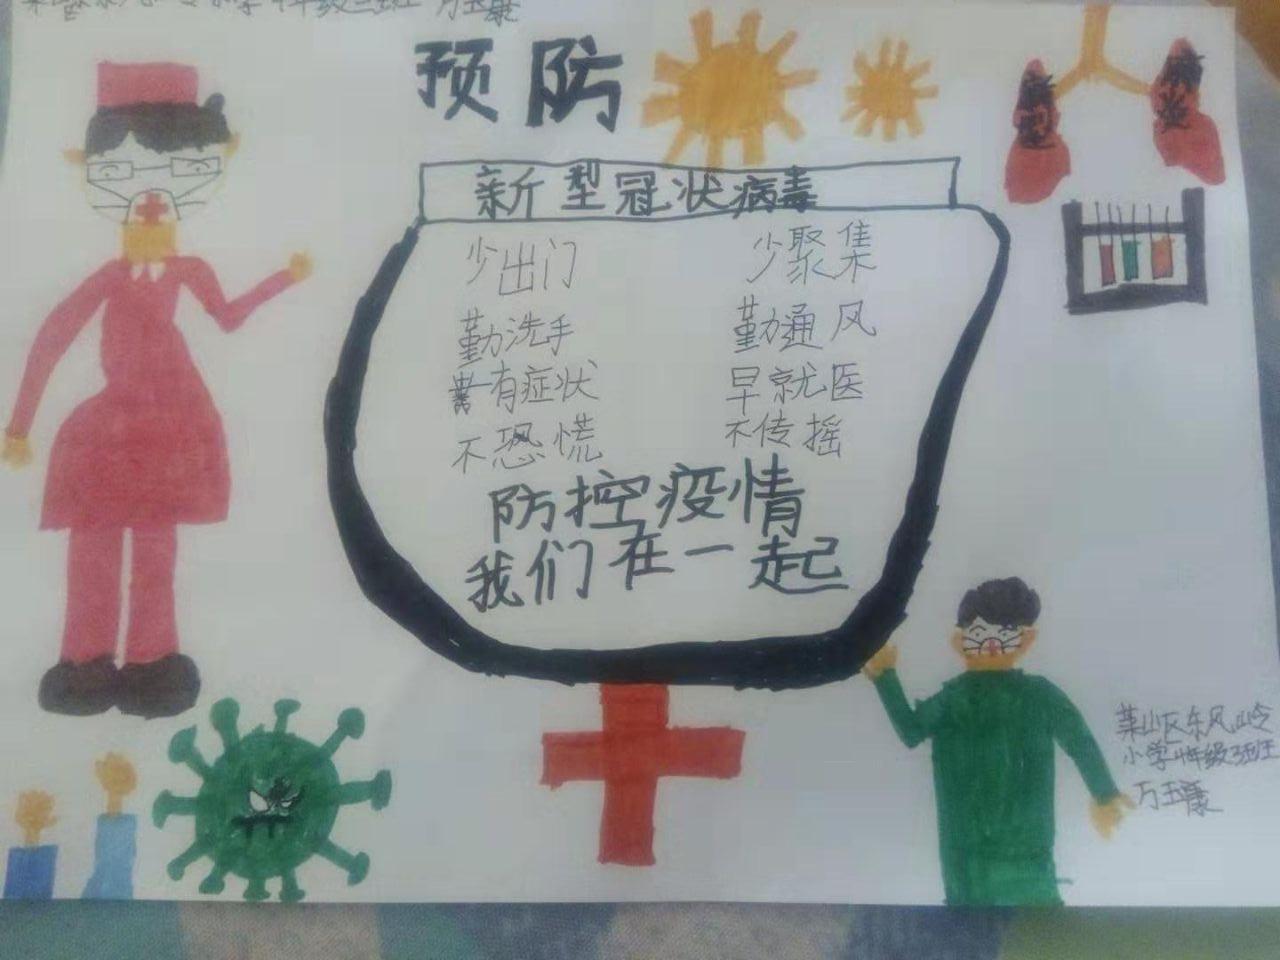 预防
新型冠状病毒
少出门 少聚集
勤洗手 勤通风
有症状 早就医
不恐慌 不传摇
防控疫情
我们在一起
新型
肺炎
莱山区东风岭
小学四年级三班
万玉康